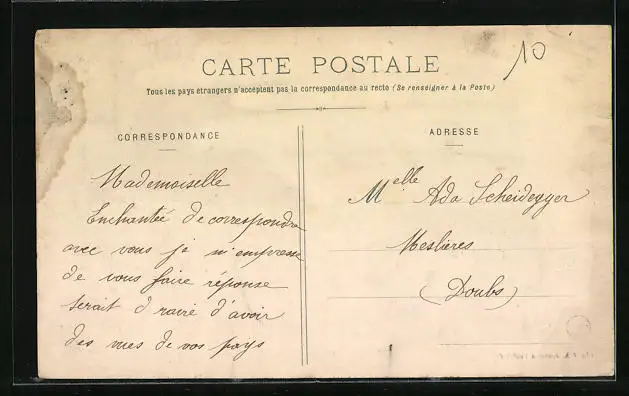 10
CARTE POSTALE
Tous les pays étrangers n'acceptent pas la correspondance au recto (Se renseigner à la Poste)
CORRESPONDANCE
Mademoiselle
Enchantée de correspondre
avec vous je m'empresse
de vous faire réponse
serait d ravie d'avoir
des vues de vos pays
ADRESSE
Melle Ada Scheidegger
Meslières
(Doubs)